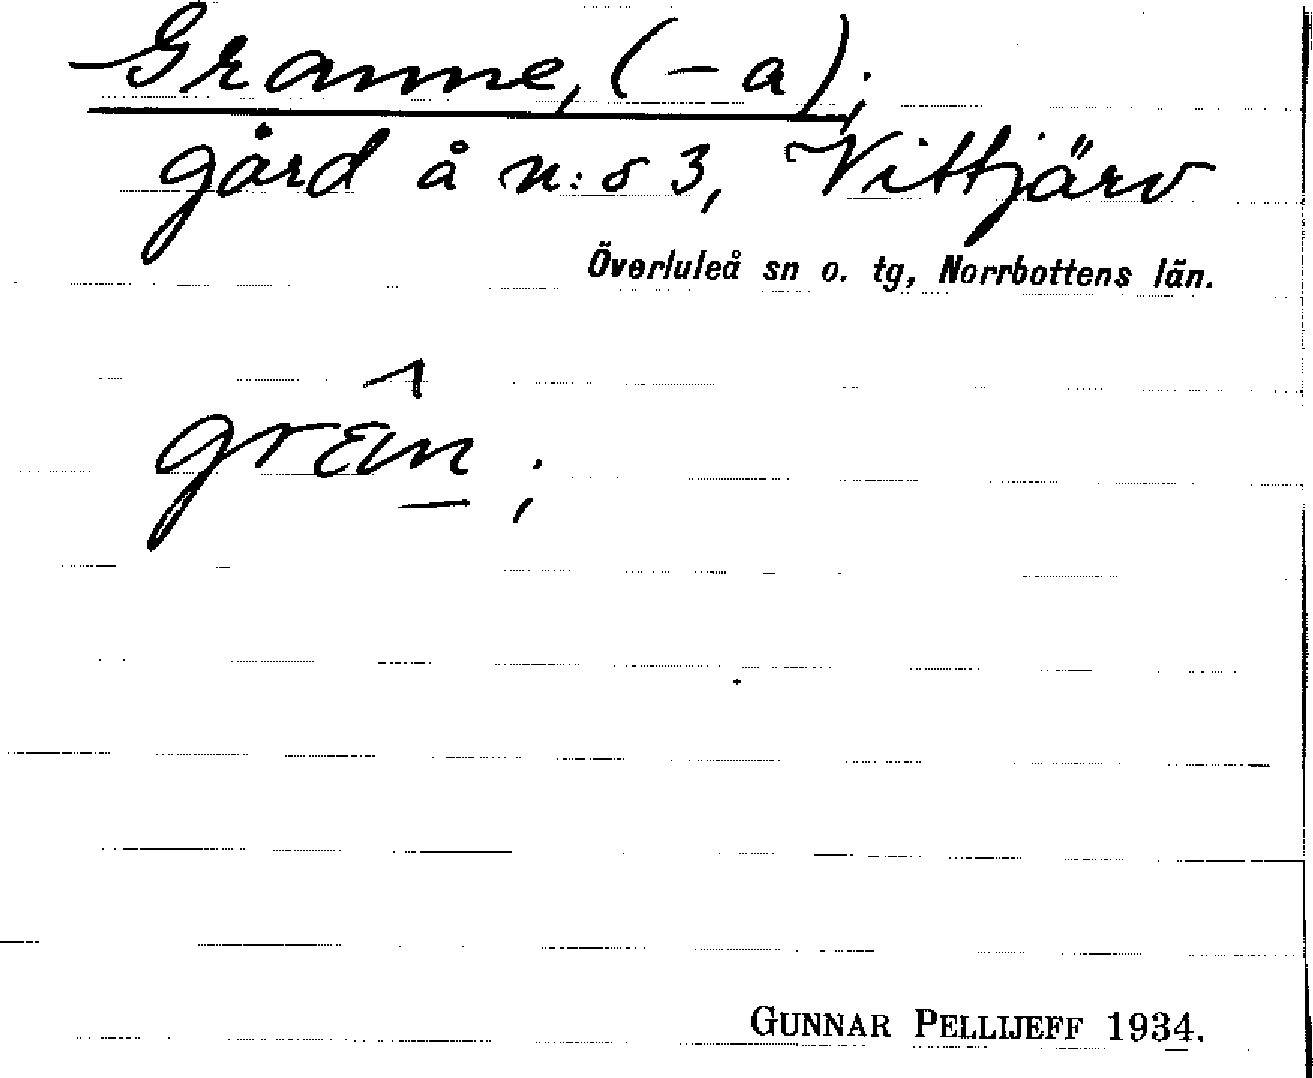 Granne, (-a);
gård å n:o 3, Vittjärv
Överluleå sn o. tg, Norrbottens län.
GUNNAR PELLIJEFF 1934.